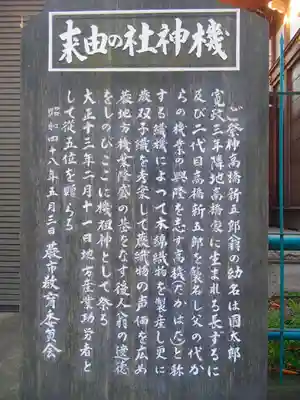 機神社の由来
ご祭神高橋新五郎翁の幼名は国太郎
寛政三年陣地高橋家に生まれる長ずるに
及び二代目高橋新五郎を襲名し父の代か
らの機業の興隆を志す高機(たかはた)と称
する織機によって木綿織物を製産し更に
蕨双子織を考案して蕨織物の声価を広め
蕨地方機業隆盛の基をなす後人翁の遺徳
をしのびここに機祖神として祭る
大正十三年二月十一日地方産業功労者と
して従五位を贈らる
昭和四八年五月三日 蕨市教育委員会